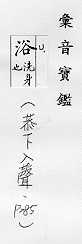 彙音寶鑑
浴 洗身也
（恭下入聲，p.85）